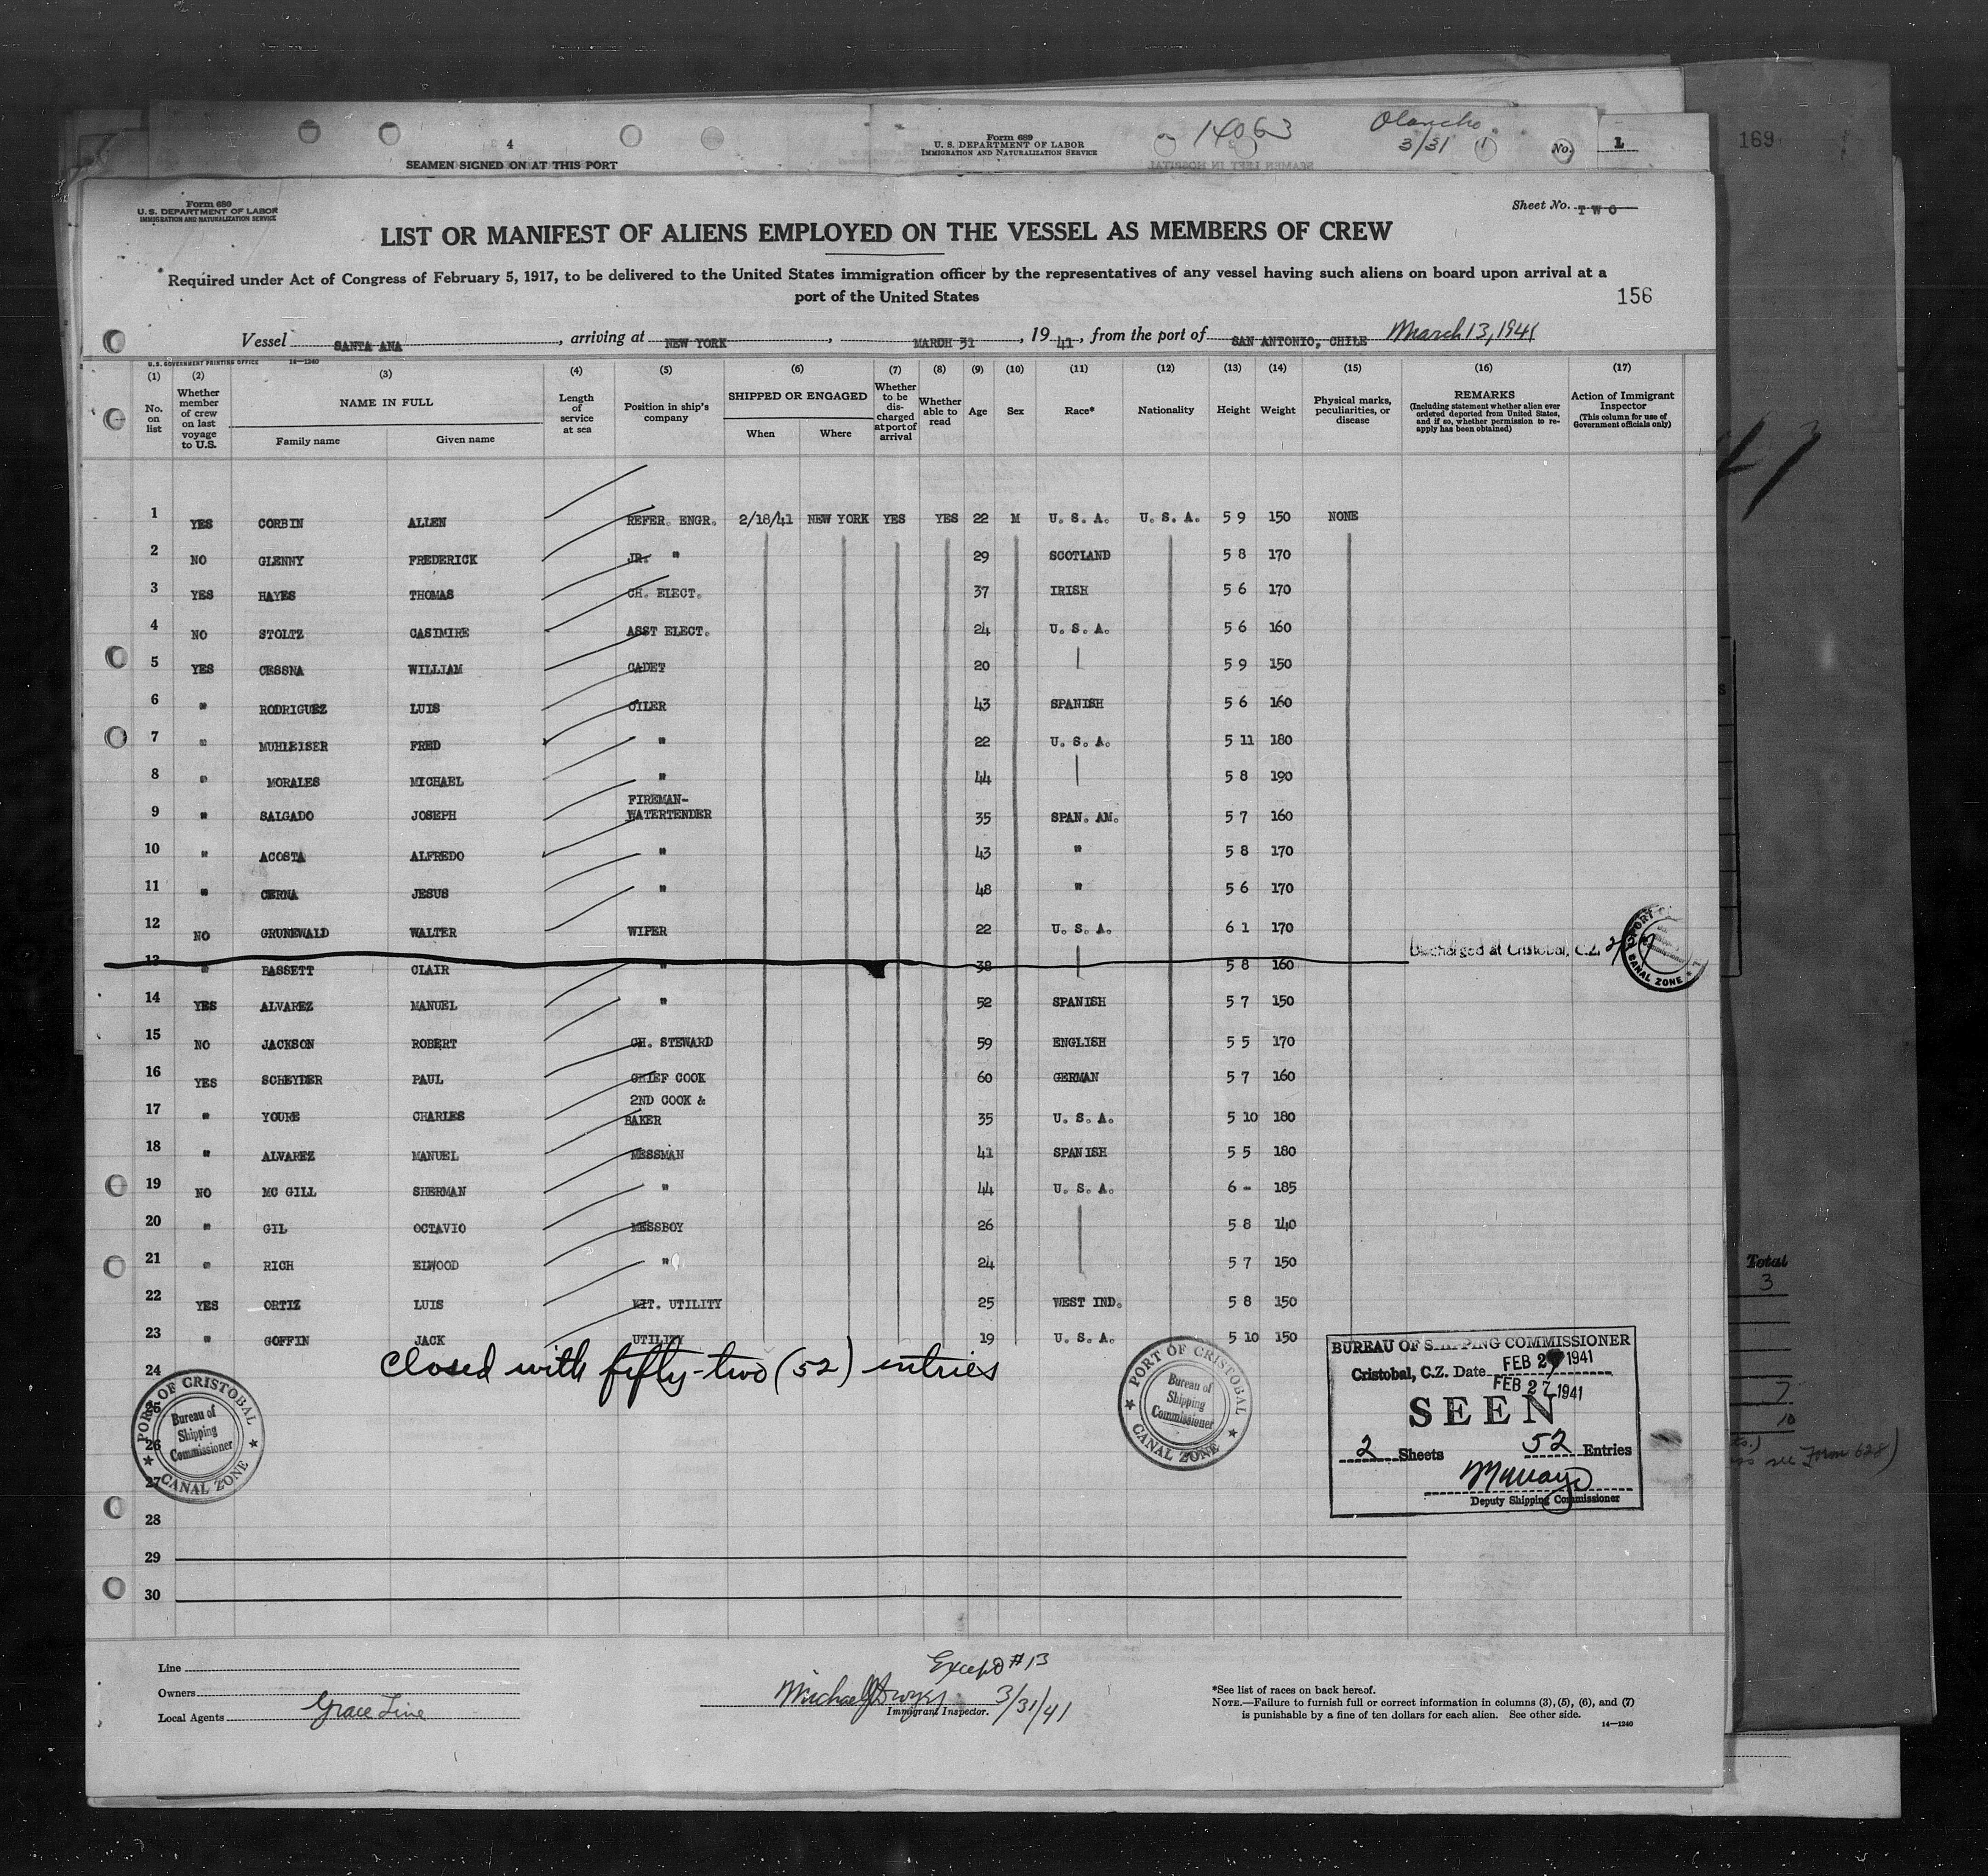 4
SEAMEN SIGNED ON AT THIS PORT
Form 689
U. S. DEPARTMENT OF LABOR
IMMIGRATION AND NATURALIZATION SERVICE
14063
Olancho
3/31
No. 1
169
Form 689
U. S. DEPARTMENT OF LABOR
IMMIGRATION AND NATURALIZATION SERVICE
Sheet No. TWO
LIST OR MANIFEST OF ALIENS EMPLOYED ON THE VESSEL AS MEMBERS OF CREW
Required under Act of Congress of February 5, 1917, to be delivered to the United States immigration officer by the representatives of any vessel having such aliens on board upon arrival at a
port of the United States
156
Vessel SANTA ANA, arriving at NEW YORK, MARCH 31, 1941, from the port of SAN ANTONIO, CHILE March 13, 1941
U.S. GOVERNMENT PRINTING OFFICE 14—1240
(1) (2) (3) (4) (5) (6) (7) (8) (9) (10) (11) (12) (13) (14) (15) (16) (17)
No. on list
Whether member of crew on last voyage to U.S.
NAME IN FULL
Family name Given name
Length of service at sea
Position in ship's company
SHIPPED OR ENGAGED
When Where
Whether to be discharged at port of arrival
Whether able to read
Age
Sex
Race*
Nationality
Height
Weight
Physical marks, peculiarities, or disease
REMARKS
(Including statement whether alien ever ordered deported from United States, and if so, whether permission to reapply has been obtained)
Action of Immigrant Inspector
(This column for use of Government officials only)
1 YES CORBIN ALLEN REFER. ENGR. 2/18/41 NEW YORK YES YES 22 M U. S. A. U. S. A. 5 9 150 NONE
2 NO GLENNY FREDERICK JR. " 29 SCOTLAND 5 8 170
3 YES HAYES THOMAS CH. ELECT. 37 IRISH 5 6 170
4 NO STOLTZ CASIMIRE ASST ELECT. 24 U. S. A. 5 6 160
5 YES CESSNA WILLIAM CADET 20 5 9 150
6 " RODRIGUEZ LUIS OILER 43 SPANISH 5 6 160
7 " MUHLEISER FRED " 22 U. S. A. 5 11 180
8 " MORALES MICHAEL " 44 5 8 190
9 " SALGADO JOSEPH FIREMAN-WATERTENDER 35 SPAN. AM. 5 7 160
10 " ACOSTA ALFREDO " 43 " 5 8 170
11 " CERNA JESUS " 48 " 5 6 170
12 NO GRUNEWALD WALTER WIPER 22 U. S. A. 6 1 170
13 " BASSETT CLAIR " 38 5 8 160 Discharged at Cristobal, C.Z.
14 YES ALVAREZ MANUEL " 52 SPANISH 5 7 150
15 NO JACKSON ROBERT CH. STEWARD 59 ENGLISH 5 5 170
16 YES SCHEYDER PAUL CHIEF COOK 60 GERMAN 5 7 160
17 " YOURE CHARLES 2ND COOK & BAKER 35 U. S. A. 5 10 180
18 " ALVAREZ MANUEL MESSMAN 41 SPANISH 5 5 180
19 NO MC GILL SHERMAN " 44 U. S. A. 6 - 185
20 " GIL OCTAVIO MESSBOY 26 5 8 140
21 " RICH ELWOOD " 24 5 7 150
22 YES ORTIZ LUIS KIT. UTILITY 25 WEST IND. 5 8 150
23 " GOFFIN JACK UTILITY 19 U. S. A. 5 10 150
24 Closed with fifty-two (52) entries
25
26
27
28
29
30
PORT OF CRISTOBAL
Bureau of Shipping Commissioner
CANAL ZONE
PORT OF CRISTOBAL
Bureau of Shipping Commissioner
CANAL ZONE
BUREAU OF SHIPPING COMMISSIONER
Cristobal, C.Z. Date FEB 27 1941
FEB 27 1941
SEEN
2 Sheets 52 Entries
Deputy Shipping Commissioner
Total
3
7
10
see Form 628)
Line
Owners
Local Agents Grace Line
Except #13
Michael J Dwyer 3/31/41
Immigrant Inspector.
*See list of races on back hereof.
NOTE.—Failure to furnish full or correct information in columns (3), (5), (6), and (7)
is punishable by a fine of ten dollars for each alien. See other side.
14—1240